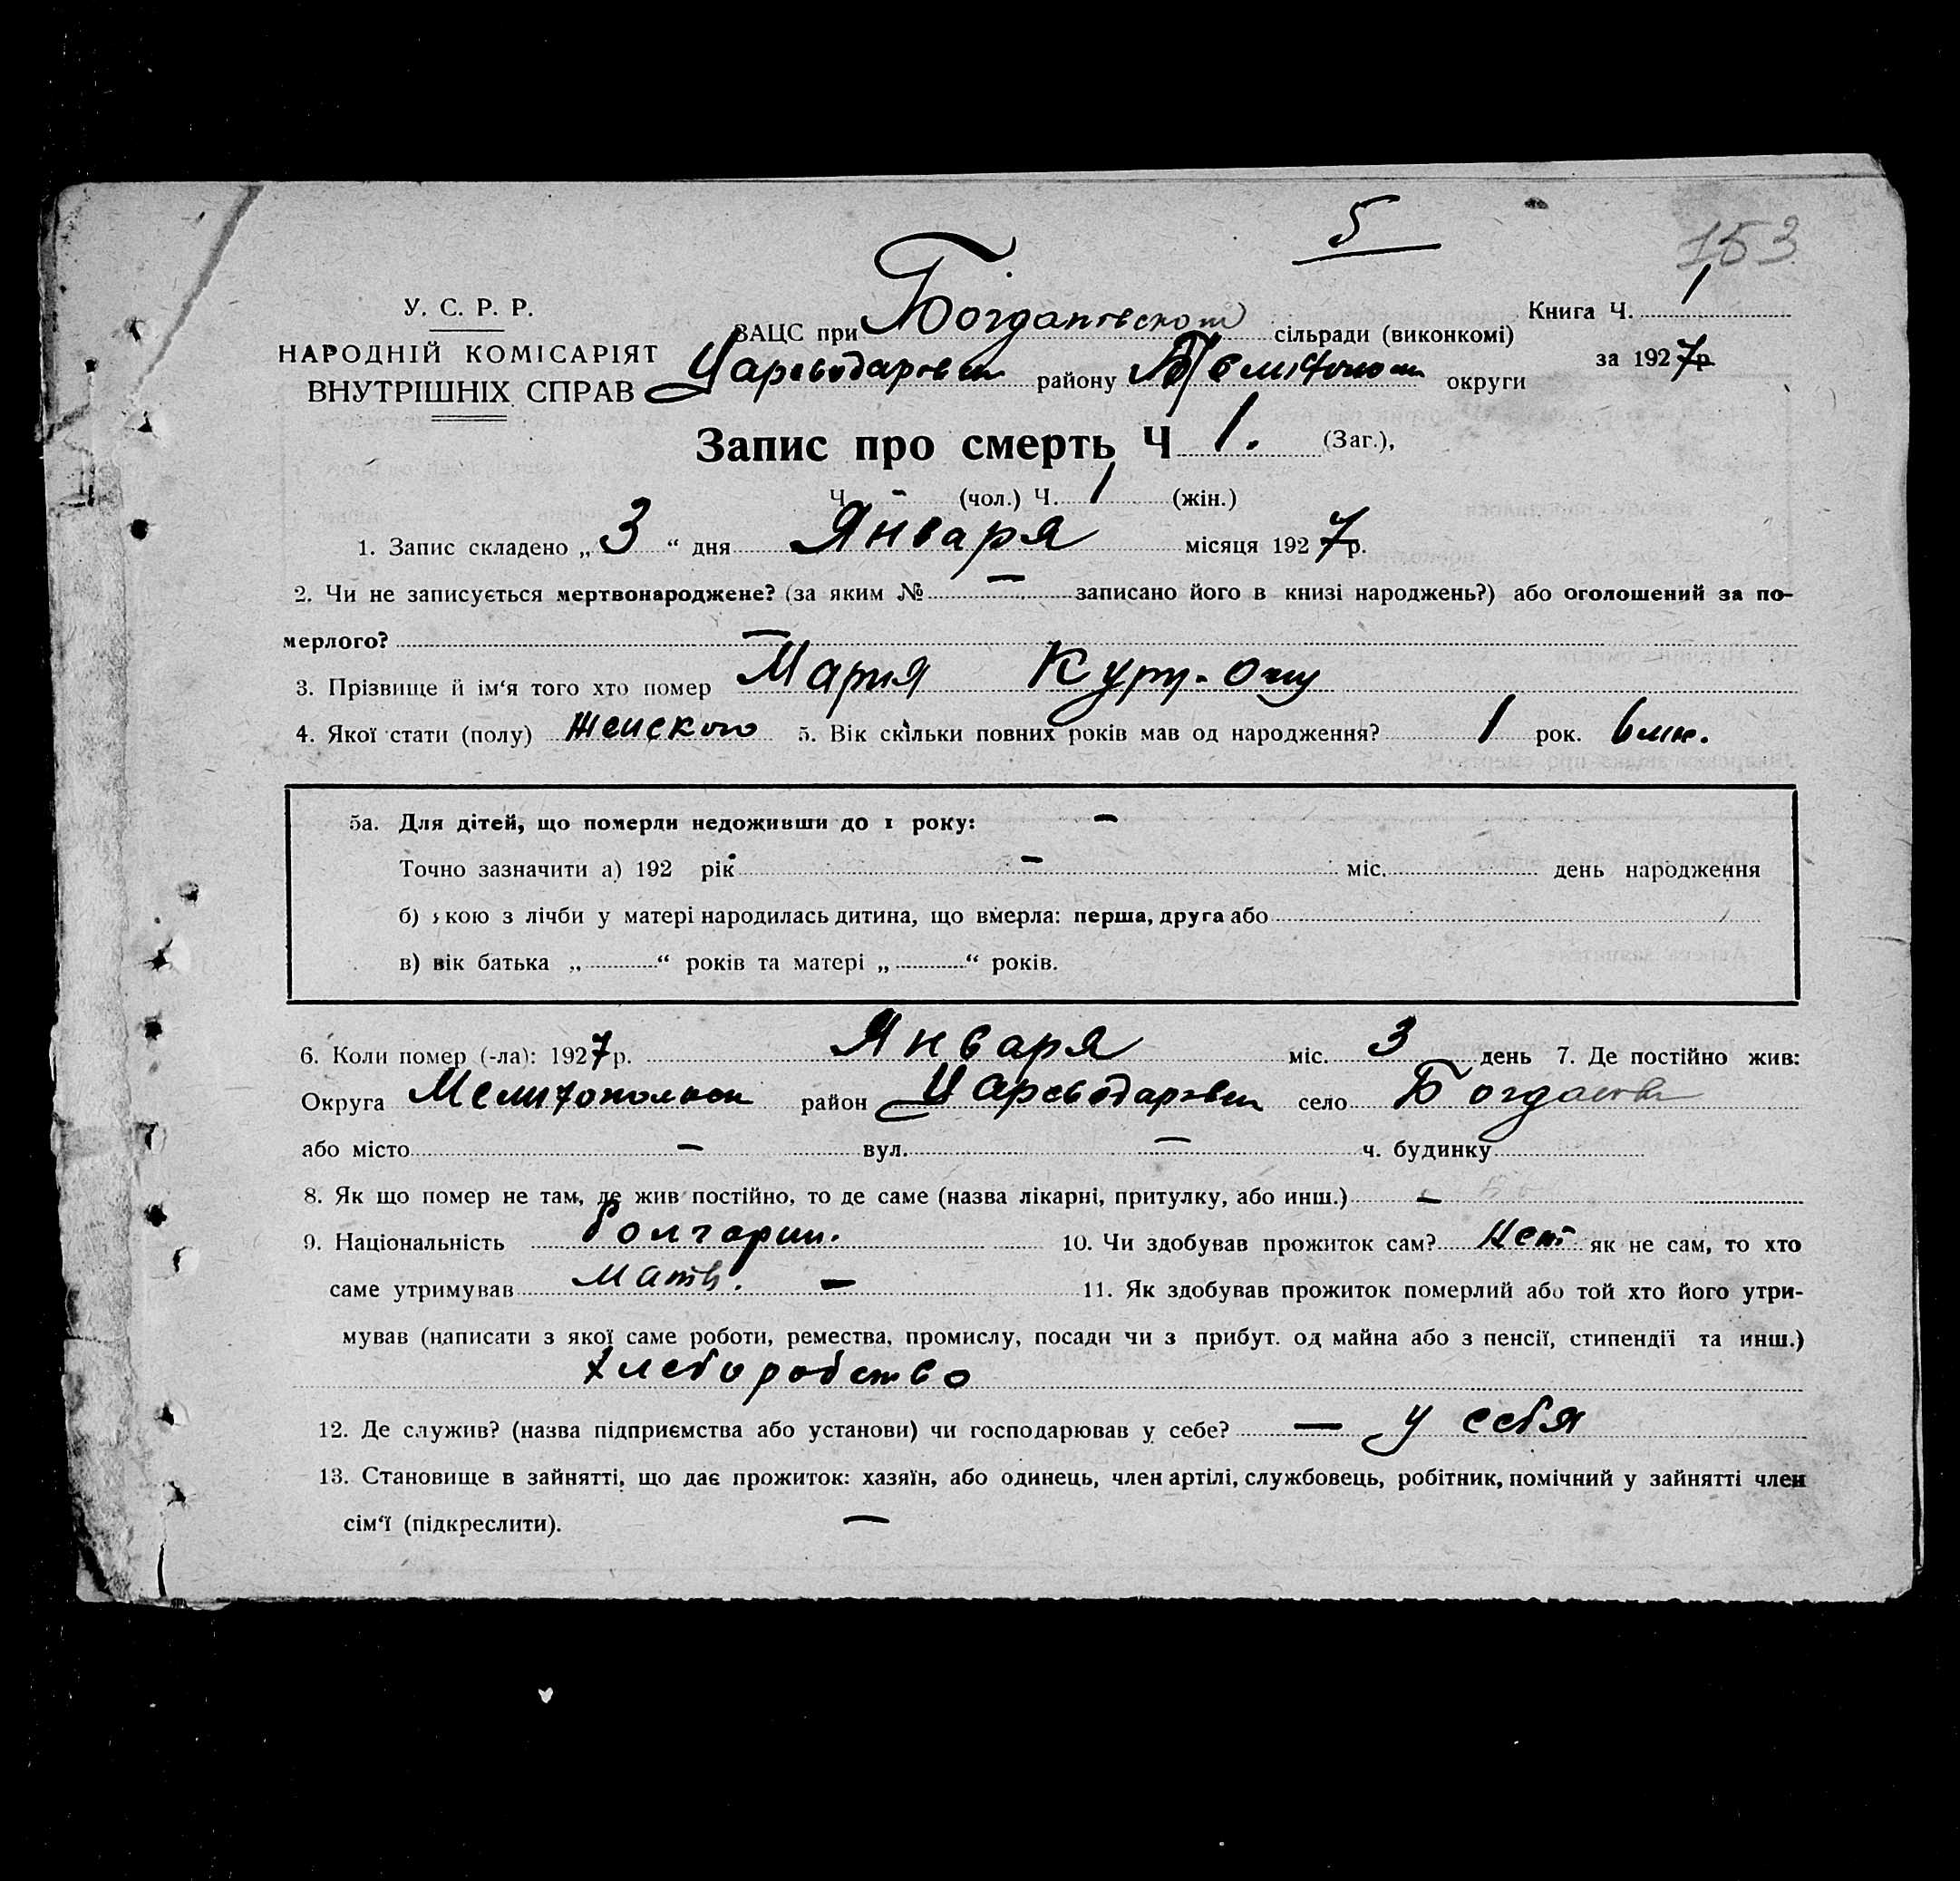 5
153
У. С. Р. Р.
НАРОДНІЙ КОМІСАРІЯТ
ВНУТРІШНІХ СПРАВ
ЗАЦС при Богдановской сільради (виконкомі)
Книга Ч. 1
району округи
за 1927р
Запис про смерть Ч 1. (Заг.),
Ч - (чол.) Ч. 1 (жін.)
1. Запис складено „ 3 “ дня Января місяця 1927р.
2. Чи не записується мертвонароджене? (за яким № — записано його в книзі народжень?) або оголошений за по-
мерлого? —
3. Прізвище й ім‘я того хто помер Мария
4. Якої стати (полу) Женского 5. Вік скільки повних років мав од народження? 1 рок. 6 мис.
5а. Для дітей, що померли недоживши до 1 року: -
Точно зазначити а) 192 рік - міс. день народження
б) якою з лічби у матері народилась дитина, що вмерла: перша, друга або
в) вік батька „ “ років та матері „ “ років.
6. Коли помер (-ла): 1927р. Января міс. 3 день 7. Де постійно жив:
Округа район село
або місто - вул. — ч. будинку
8. Як що помер не там, де жив постійно, то де саме (назва лікарні, притулку, або инш.) -
9. Національність Болгарин. 10. Чи здобував прожиток сам? Нет як не сам, то хто
саме утримував Мать. — 11. Як здобував прожиток померлий або той хто його утри-
мував (написати з якої саме роботи, ремества, промислу, посади чи з прибут. од майна або з пенсії, стипендії та инш.)
хлеборобство
12. Де служив? (назва підприємства або установи) чи господарював у себе? — у себя
13. Становище в зайнятті, що дає прожиток: хазяїн, або одинець, член артілі, службовець, робітник, помічний у зайнятті член
сім‘ї (підкреслити). —